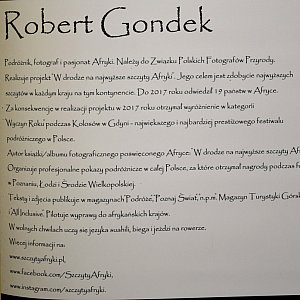 Robert Gondek
Podróżnik, fotograf i pasjonat Afryki. Należy do Związku Polskich Fotografów Przyrody.
Realizuje projekt "W drodze na najwyższe szczyty Afryki". Jego celem jest zdobycie najwyższych
szczytów w każdym kraju na tym kontynencie. Do 2017 roku odwiedził 19 państw w Afryce.
Za konsekwencję w realizacji projektu w 2017 roku otrzymał wyróżnienie w kategorii
Wyczyn Roku podczas Kolosów w Gdyni - największego i najbardziej prestiżowego festiwalu
podróżniczego w Polsce.
Autor książki/albumu fotograficznego poświęconego Afryce: "W drodze na najwyższe szczyty Af
Organizuje profesjonalne pokazy podróżnicze w całej Polsce, za które otrzymał nagrody podczas fe
w Poznaniu, Łodzi i Środzie Wielkopolskiej.
Teksty i zdjęcia publikuje w magazynach Podróże, "Poznaj Świat", n.p.m. Magazyn Turystyki Górsk
i "All Inclusive". Pilotuje wyprawy do afrykańskich krajów.
W wolnych chwilach uczy się języka suahili, biega i jeździ na rowerze.
Więcej informacji na:
www.szczytyafryki.pl,
www.facebook.com/SzczytyAfryki,
www.instagram.com/szczytyafryki.